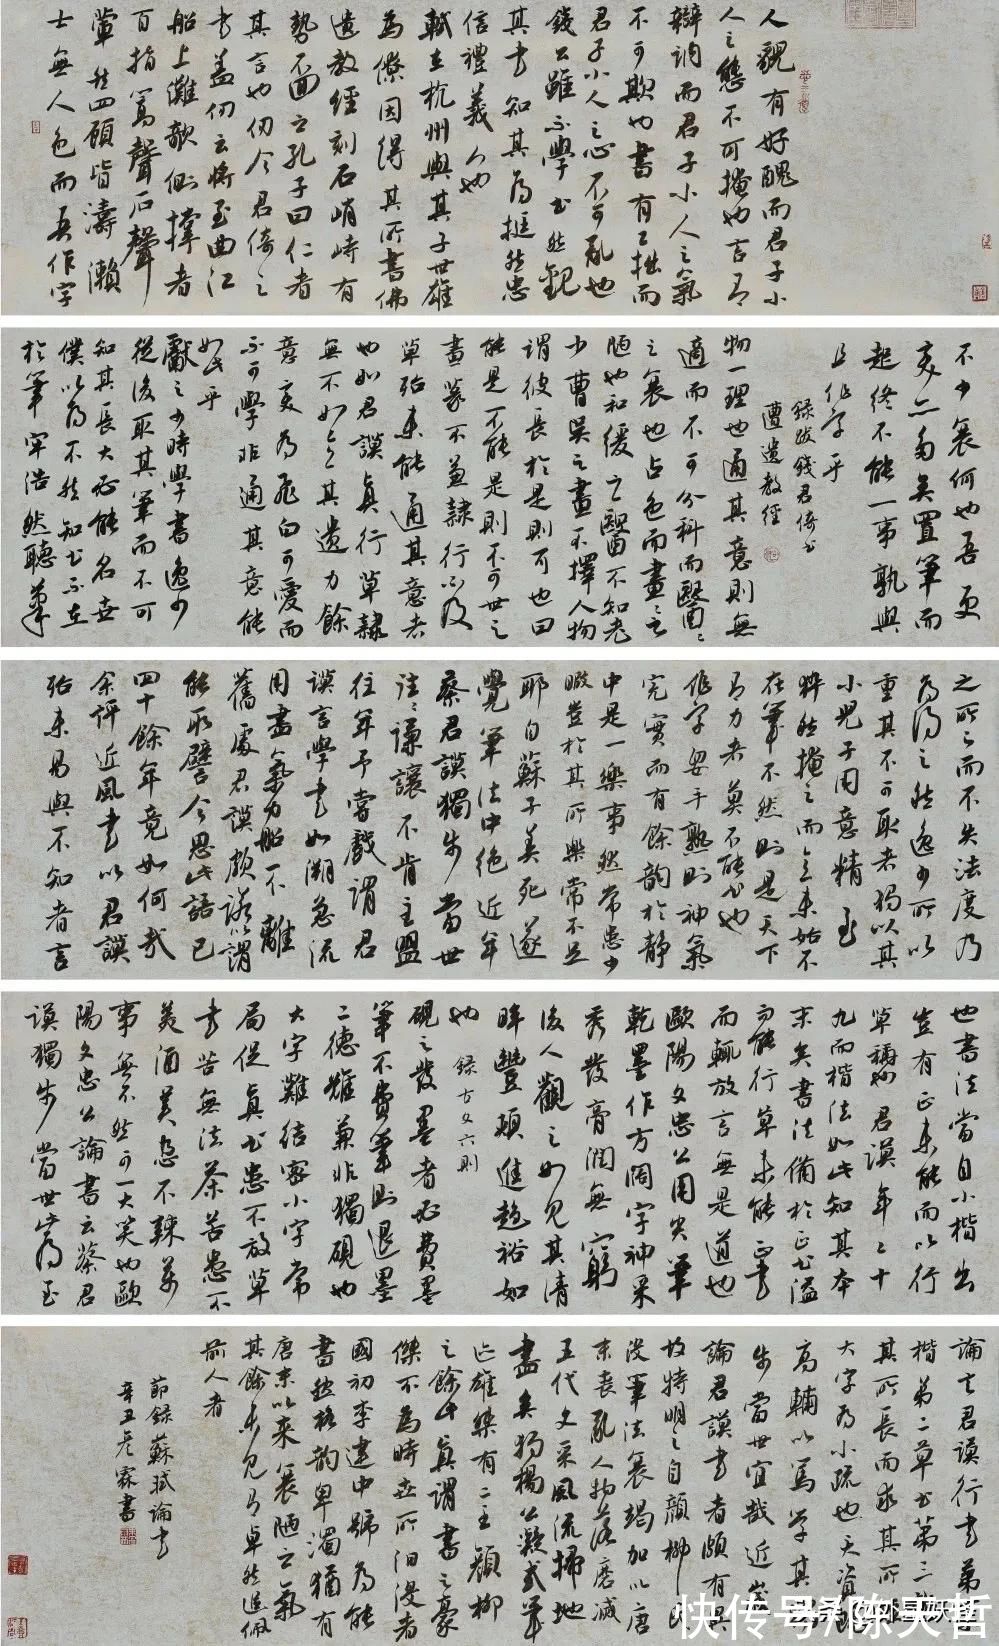 人貌有好醜而君子小
人之態不可掩也言有
辯訥而君子小人之氣
不可欺也書有工拙而
君子小人之心不可亂也
錢公雖不學書然觀
其書知其為挺然忠
信禮義人也
軾在杭州與其子世雄
為僚因得其所書佛
遺教經刻石峭峙有
勢不回之孔子曰仁者
其言也仞今君倚之
書蓋仞云將至曲江
船上灘欹側撐者
百指篙聲石聲
葷然四顧皆濤瀨
士無人色而吾作字
不少衰何也吾更
變亦多矣置筆而
起終不能一事孰與
且作字乎
錄跋錢君倚書
遺教經
物一理也通其意則無
適而不可分科而醫醫
之衰也占色而畫畫之
陋也和緩之醫不知老
少曹吳之畫不擇人物
謂彼長於是則可也曰
能是不能是則不可世之
書篆不兼隸行不及
草殆未能通其意者
也如君謨真行草隸
無不如意其遺力餘
意變為飛白可愛而
不可學非通其意能
如此乎
獻之少時學書逸少
從後取其筆而不可
知其長大必能名世
僕以為不然知書不在
於筆牢浩然聽筆
之所之而不失法度乃
為得之然逸少所以
重其不可取者獨以其
小兒子用意精至
猝然掩之而意未始不
在筆不然則是天下
有力者莫不能書也
作字要手熟則神氣
完實而有餘韻於靜
中是一樂事然常患少
暇豈於其所樂常不足
耶自蘇子美死遂
覺筆法中絕近年
蔡君謨獨步當世
往往謙讓不肯主盟
往年予嘗戲謂君
謨言學書如溯急流
用盡氣力船不離
舊處君謨頗諾以謂
能取譬今思此語已
四十餘年竟如何哉
余評近風書以君謨
殆未易與不知者言
也書法當自小楷出
豈有正未能而以行
草稱也君謨年二十
九而楷法如此知其本
末矣書法備於正書溢
而能行草未能正書
而輒放言無是道也
歐陽文忠公用尖筆
乾墨作方闊字神采
秀發膏潤無窮
後人觀之如見其清
眸豐頰進趨裕如
也 錄古文六則
硯之發墨者必費墨
筆不費筆則退墨
二德難兼非獨硯也
大字難結密小字常
局促真書患不放草
書苦無法茶苦患不
美酒美患不辣萬
事無不然可一大笑也歐
陽文忠公論書云蔡君
謨獨步當世此為至
論言君謨行書第一小
楷第二草書第三就
其所長而求其所
大字為小疏也天資既
高輔以篤學其
步當世宜哉近歲
論君謨書者頗有異
故特明之自顏柳氏
沒筆法衰竭加以唐
末喪亂人物落磨滅
五代文采風流掃地
盡矣獨楊公凝式筆
跡雄傑有二王顏柳
之餘此真謂書之豪
傑不為時世所汩沒者
國初李建中號為能
書然格韻卑濁猶有
唐末以來衰陋之氣
其餘未見有卓然追佩
前人者
節錄蘇軾論書
辛丑 霖書
快传号/陈昊哲